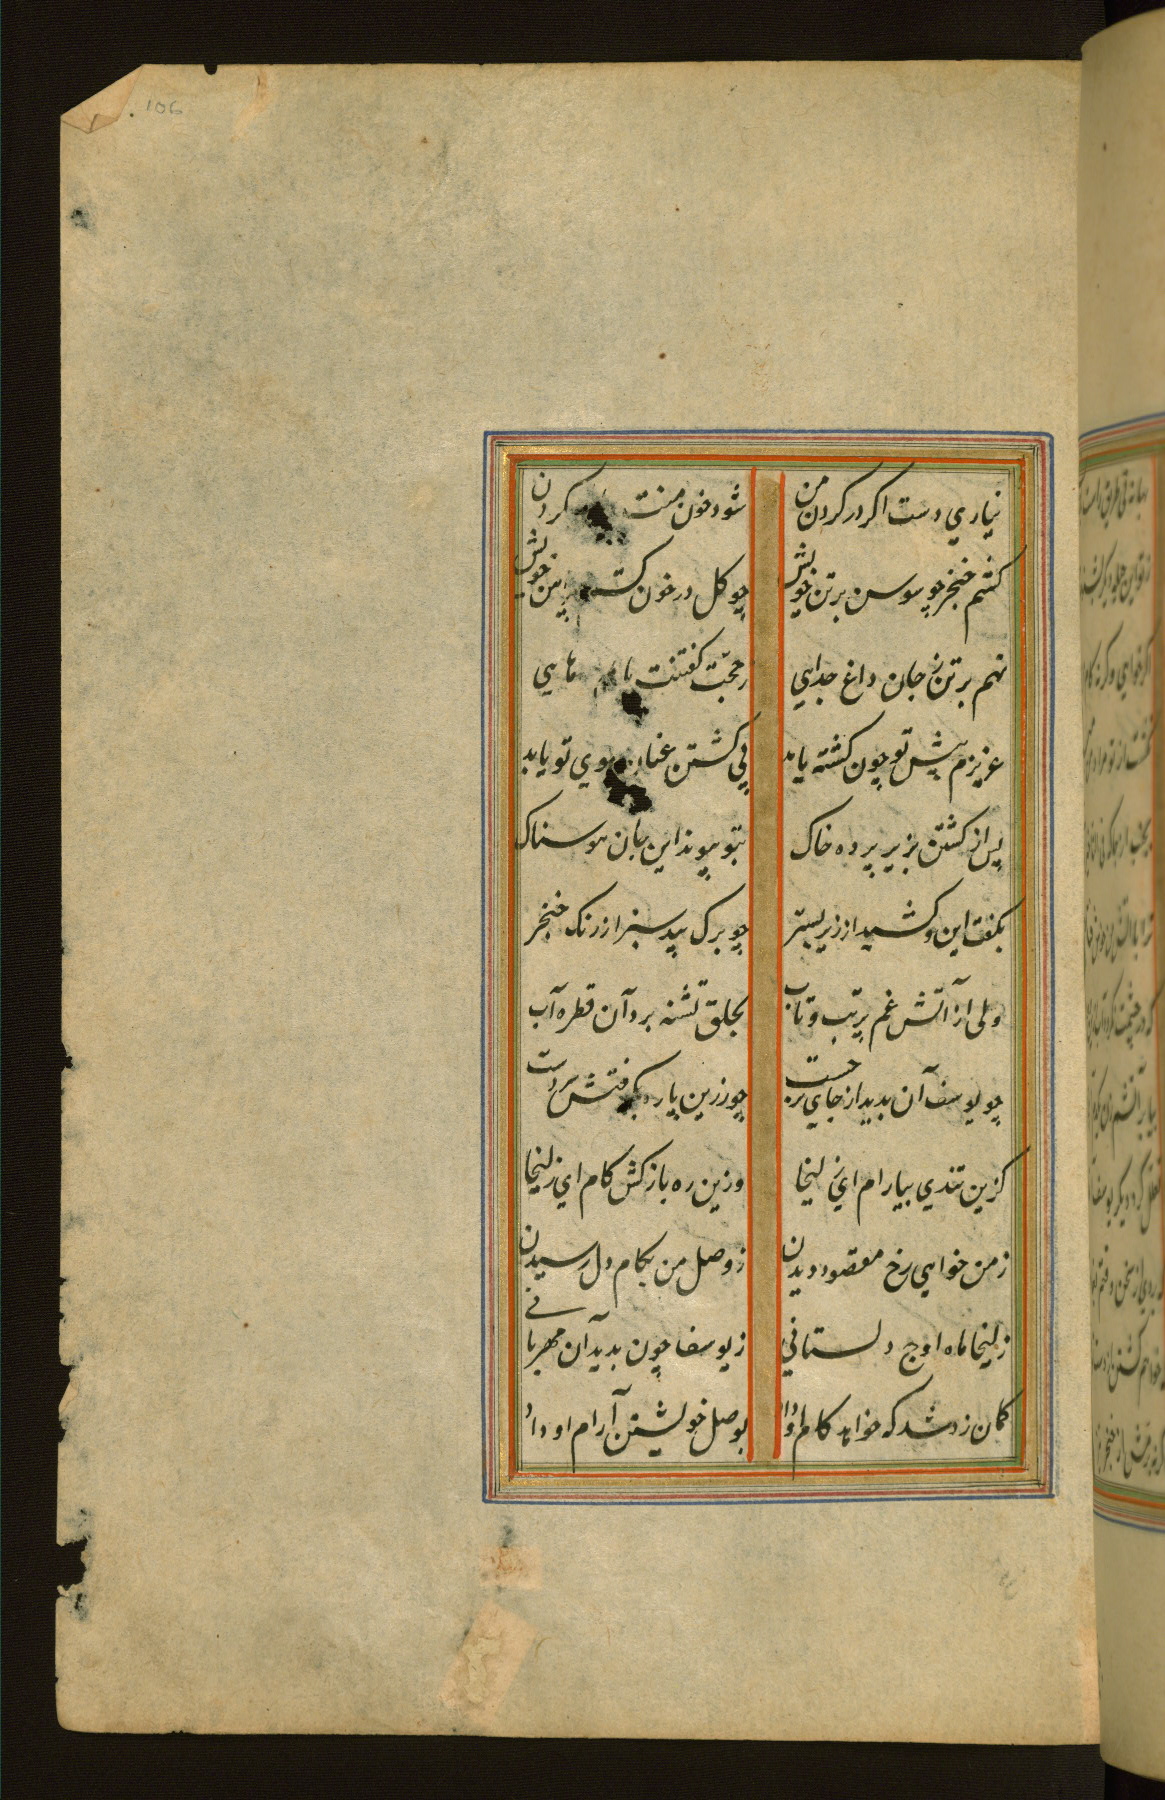 106
نیاري دست اکر در کردن من شود خون منت کردن
کشم خنجر چو سوسن برتن خویش چو کل در خون کشم پیراهن خویش
نهم برتن ز جان داغ جداىي ز حجت کفتنت یابم رهاىي
عزیزم پیش تو چون کشته یابد پي کشتن عنان سوي تو یابد
پس از کشتن بزیر پرده خاک بتو پیوند این جان هوسناک
بکفت این و کشید از زیر بستر چو برک بید سبز از زنک خنجر
ولی از آتش غم پرتب و تاب بحلق تشنه برد آن قطره آب
چو یوسف آن بدید از جاي برجست چو زرین یاره بکرفتش سر دست
کزین تندي بیارام اي زلیخا وزین ره بازکش کام اي زلیخا
ز من خواهي رخ مقصود دیدن ز وصل من بکام دل رسیدن
زلیخا ماه اوج دلستاني ز یوسف چون بدید آن مهرباني
کمان زد شد که خواهد کام او داد بوصل خویشتن آرام او داد